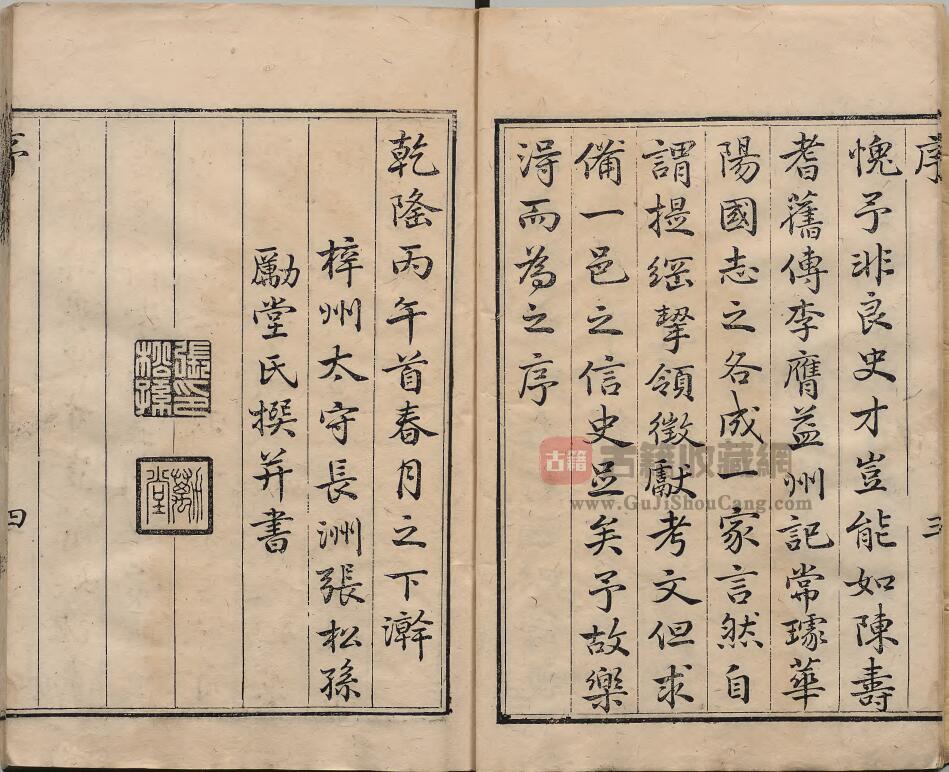 序
三
愧予非良史才豈能如陳壽
耆舊傳李膺益州記常璩華
陽國志之各成一家言然自
謂提綱挈領徵獻考文但求
備一邑之信史足矣予故樂
得而為之序
乾隆丙午首春月之下澣
梓州太守長洲張松孫
勵堂氏撰并書
張印松孫
勵堂
序
四
古籍
古籍收藏網
www.GuJiShouCang.com